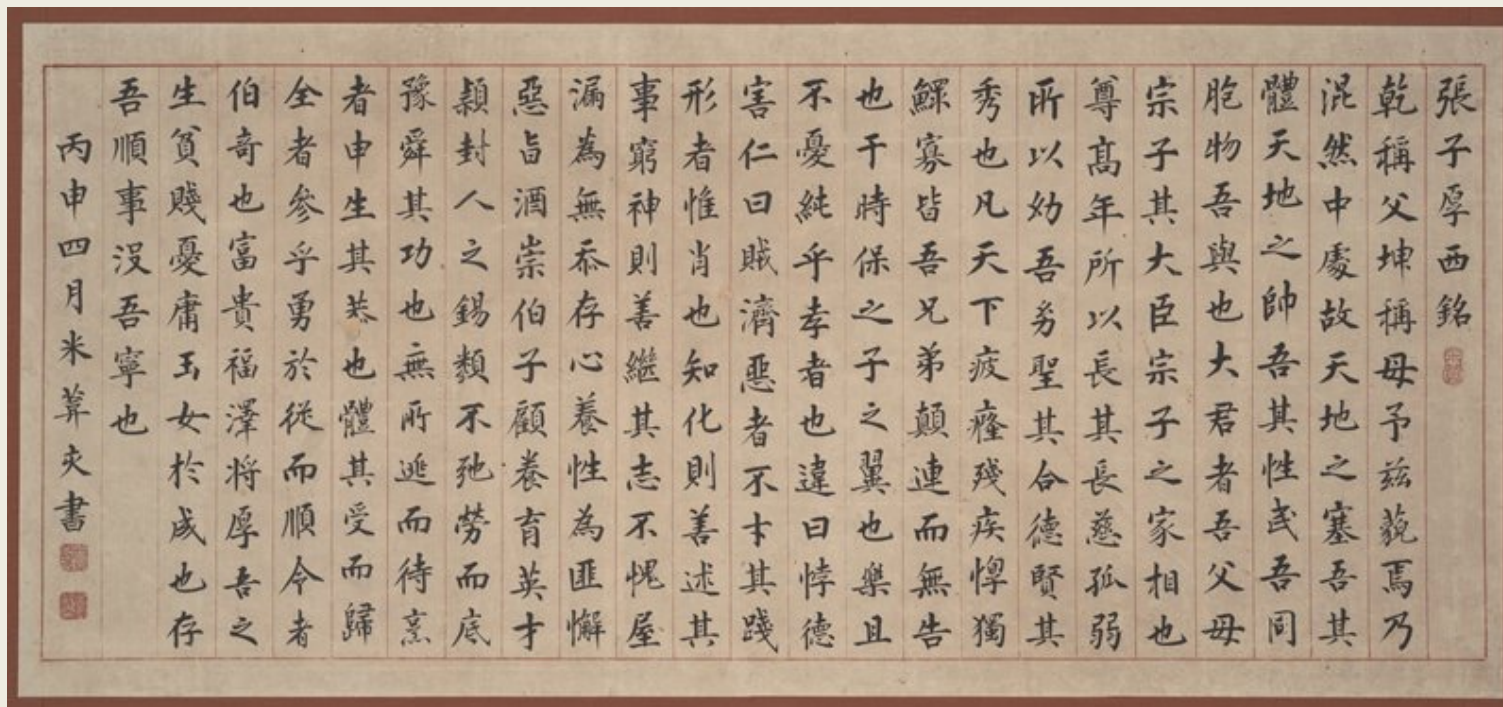 張子厚西銘
乾稱父坤稱母予茲藐焉乃
混然中處故天地之塞吾其
體天地之帥吾其性民吾同
胞物吾與也大君者吾父母
宗子其大臣宗子之家相也
尊高年所以長其長慈孤弱
所以幼吾幼聖其合德賢其
秀也凡天下疲癃殘疾惸獨
鰥寡皆吾兄弟顛連而無告
也于時保之子之翼也樂且
不憂純乎孝者也違曰悖德
害仁曰賊濟惡者不才其踐
形者惟肖也知化則善述其
事窮神則善繼其志不愧屋
漏為無忝存心養性為匪懈
惡旨酒崇伯子顧養育英才
潁封人之錫類不弛勞而底
豫舜其功也無所逃而待烹
者申生其恭也體其受而歸
全者參乎勇於從而順令者
伯奇也富貴福澤將厚吾之
生貧賤憂庸玉女於成也存
吾順事沒吾寧也
丙申四月米萬夫書